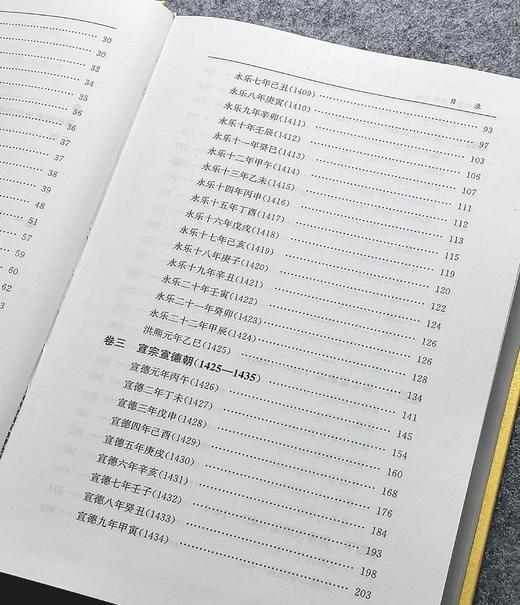 30
30
32
34
35
36
36
37
37
38
39
40
48
51
57
59
60
62
63
目 录
永乐七年己丑(1409)……93
永乐八年庚寅(1410)……97
永乐九年辛卯(1411)……103
永乐十年壬辰(1412)……106
永乐十一年癸巳(1413)……107
永乐十二年甲午(1414)……111
永乐十三年乙未(1415)……112
永乐十四年丙申(1416)……113
永乐十五年丁酉(1417)……115
永乐十六年戊戌(1418)……119
永乐十七年己亥(1419)……120
永乐十八年庚子(1420)……122
永乐十九年辛丑(1421)……124
永乐二十年壬寅(1422)……126
永乐二十一年癸卯(1423)……126
永乐二十二年甲辰(1424)……128
洪熙元年乙巳(1425)……134
卷三 宣宗宣德朝(1425—1435)……141
宣德元年丙午(1426)……145
宣德二年丁未(1427)……154
宣德三年戊申(1428)……160
宣德四年己酉(1429)……168
宣德五年庚戌(1430)……176
宣德六年辛亥(1431)……184
宣德七年壬子(1432)……193
宣德八年癸丑(1433)……198
宣德九年甲寅(1434)……203